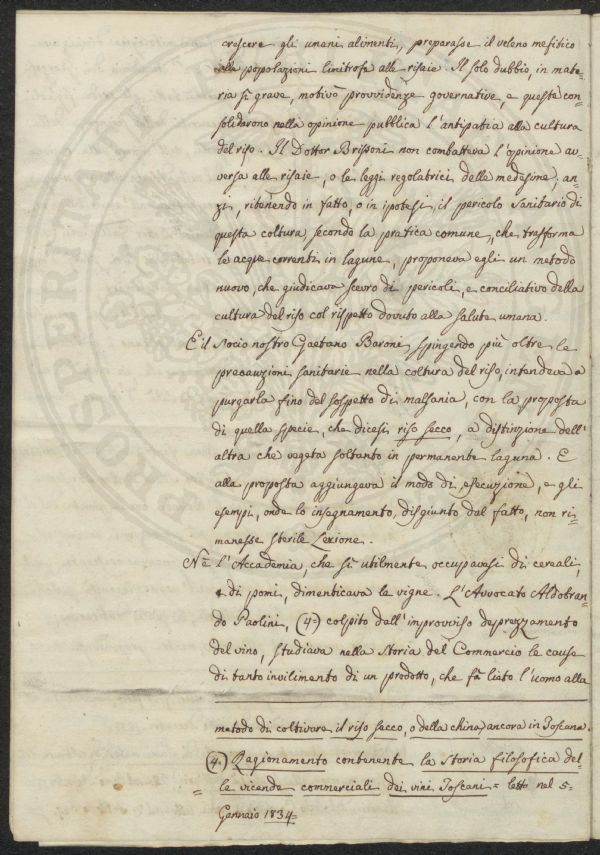 crescere gli umani alimenti, preparasse il veleno mefitico
alla popolazioni limitrofe alle risaie. Il solo dubbio, in mate=
ria sì grave, motivò provvidenze governative, e queste con=
solidarono nella opinione pubblica l'antipatia alla cultura
del riso. Il Dottor Brissoni non combatteva l'opinione av=
versa alle risaie, o le leggi regolatrici delle medesime; an=
zi, ritenendo in fatto, o in ipotesi, il pericolo sanitario di
questa coltura, secondo la pratica comune, che trasforma
le acque correnti in lagune, proponeva egli un metodo
nuovo, che giudicava scevro di pericoli, e conciliativo della
cultura del riso col rispetto dovuto alla salute umana.
E il Socio nostro Gaetano Baroni, spingendo più oltre le
precauzioni sanitarie nella coltura del riso, intendeva a
purgarla fino del sospetto di malsania, con la proposta
di quella specie, che dicesi riso secco, a distinzione dell'
altra che vegeta soltanto in permanente laguna. E
alla proposta aggiungeva il modo di esecuzione, e gli
esempi, onde lo insegnamento, disgiunto dal fatto, non ri=
manesse sterile Lezione.
Nè l'Accademia, che sì utilmente occupavasi di cereali,
e di pomi, dimenticava le vigne. L'Avvocato Aldobran=
do Paolini, (4=) colpito dall'improvviso desprezzamento
del vino, studiava nella Storia del Commercio le cause
di tanto invilimento di un prodotto, che fa lieto l'uomo alla
metodo di coltivare il riso secco, o della china, ancora in Toscana.
(4.) Ragionamento contenente la Storia filosofica del=
= le vicende commerciali dei vini Toscani = letto nel 5=
Gennaio 1834=
PROSPERITATI